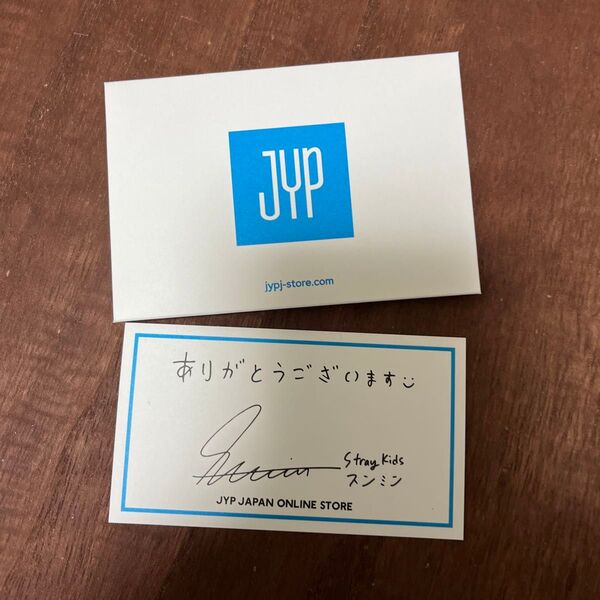 JYP
jypj-store.com
ありがとうございます
Stray Kids
スンミン
JYP JAPAN ONLINE STORE